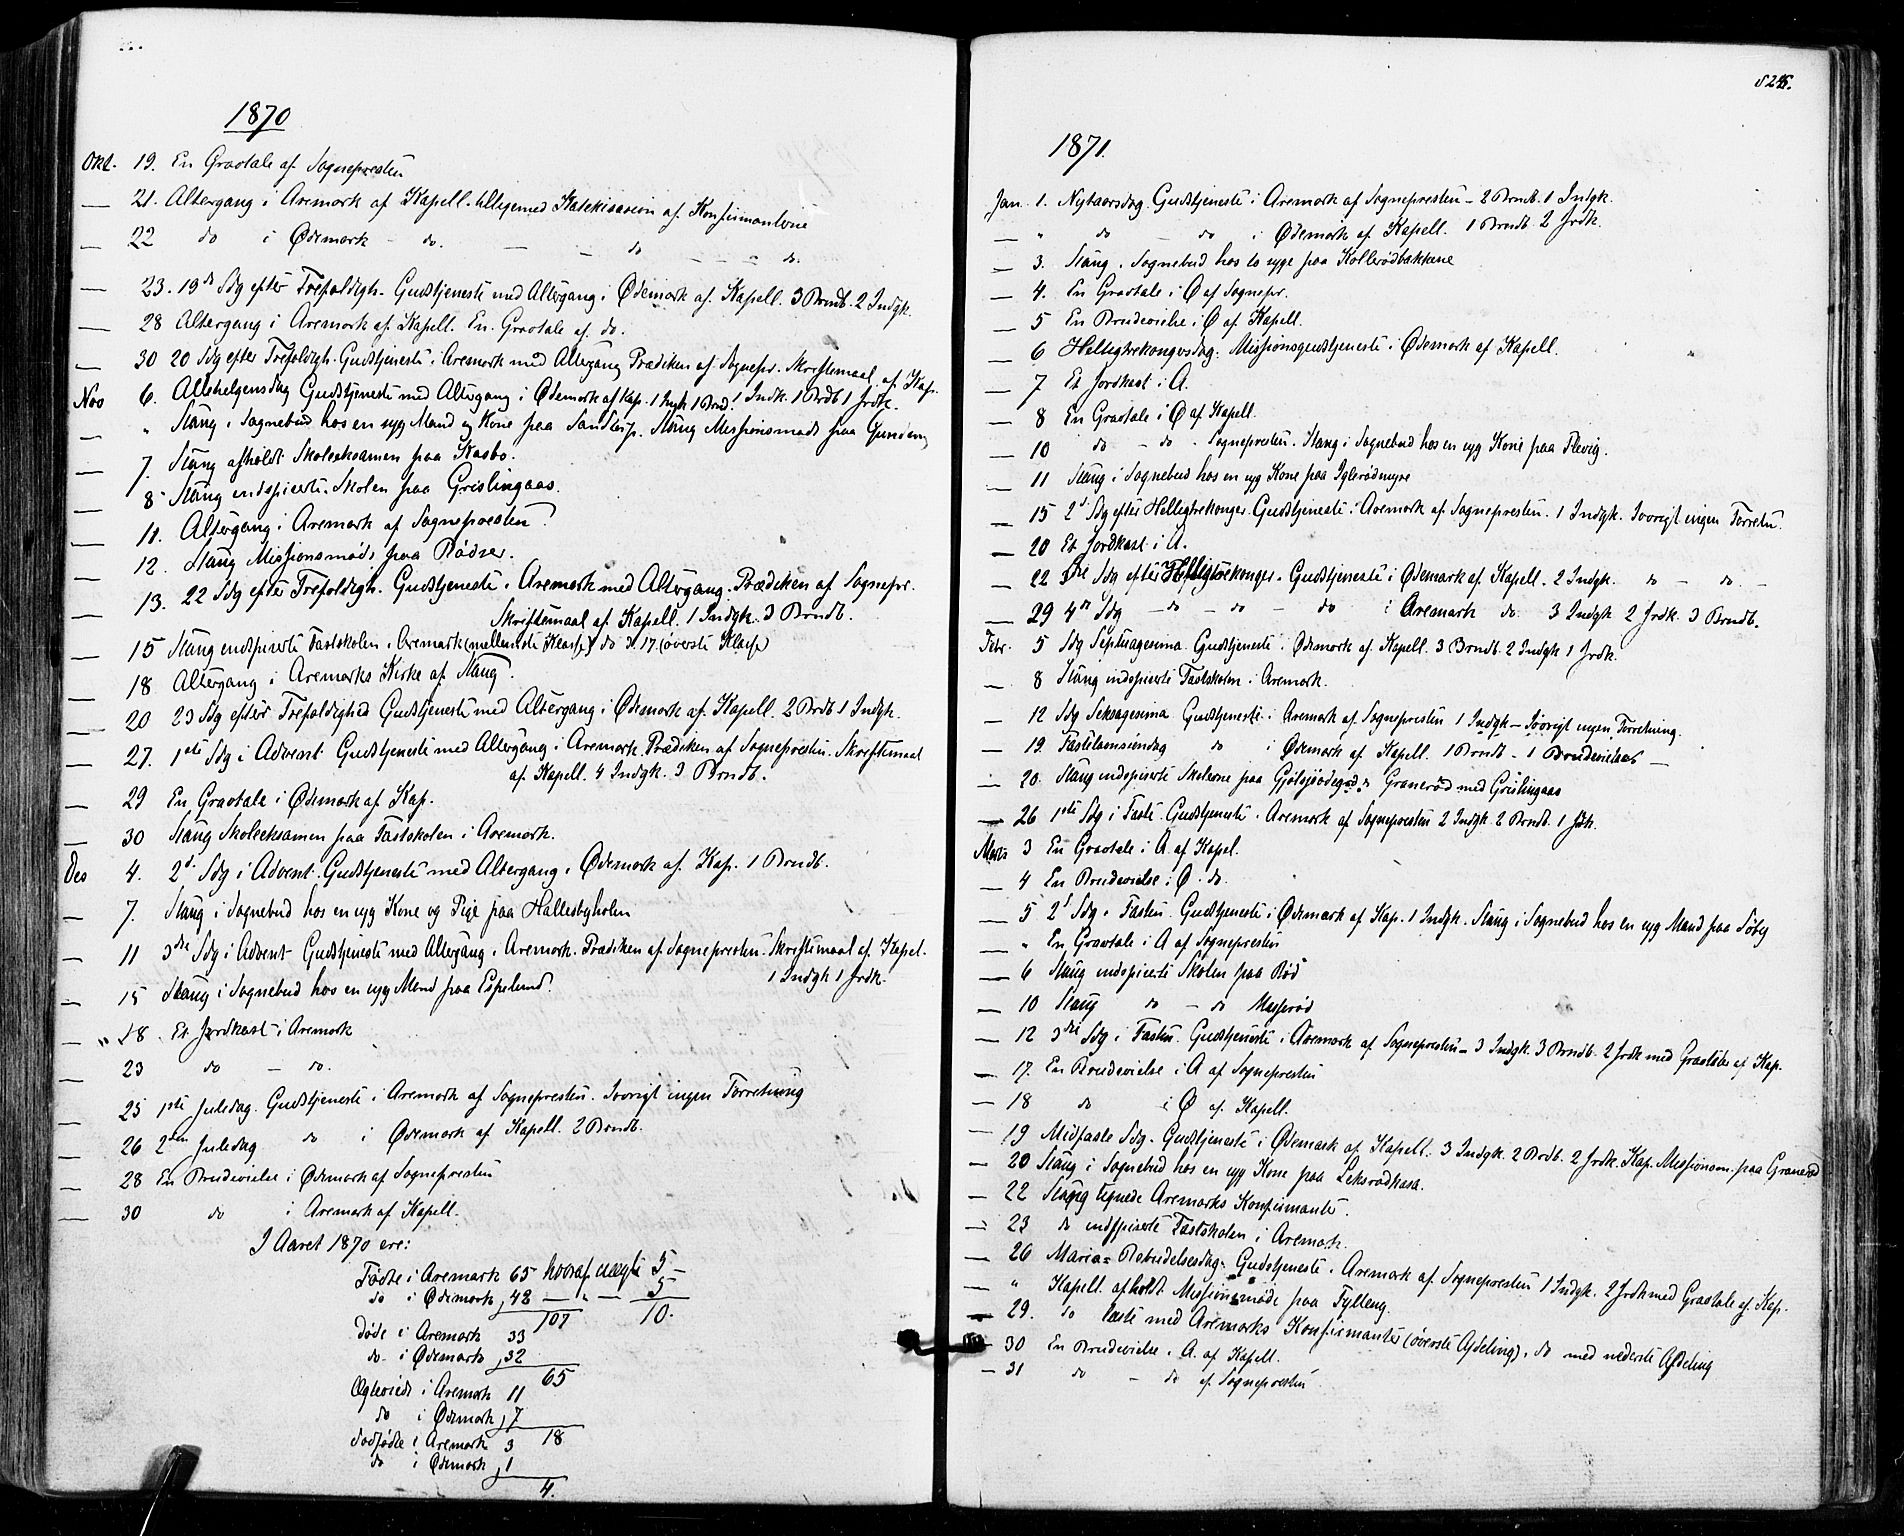 1870
Okt. 19. En Gravtale af Sognepresten
— 21. Altergang i Aremark af Kapell. tilligemed Katekisasion af Konfirmanterne
— 22 do i Ødemark - do. — — do — — — do.
— 23. 19de Sdg efter Trefoldigh. Gudstjeneste med Altergang i Ødemark af Kapell. 3 Brndb. 2 Indgk.
— 28 Altergang i Aremark af Kapell. En Gravtale af do.
— 30 20 Sdg efter Trefoldigh. Gudstjeneste i Aremark med Altergang Prædiken af Sognepr. Skriftemaal af Kap.
1 Indk. 1 Brdb 1 Jrdk.
Nov 6. Allehelgensdag Gudstjeneste med Altergang i Ødemark af Kap. 1 Ingk 1 Brnd.
— " Stang i Sognebud hos en syg Mand og Kone paa Sandtorp. Stang Missionsmøde paa Gunneng
— 7. Stang afholdt Skoleeksamen paa Kasbo.
— 8 Stang indspiserte Skolen paa Grislingaas.
— 11. Altergang i Aremark af Sognepresten.
— 12. Stang Missionsmøde paa Rødser.
— 13. 22 Sdg efter Trefoldigh. Gudstjeneste i Aremark med Altergang. Prædiken af Sognepr.
Skriftemaal af Kapell. 1 Indgk. 3 Brndb.
— 15 Stang indspiserte Fastskolen i Aremark (mellemste Klasse) do d. 17. (øverste Klasse)
— 18 Altergang i Aremarks Kirke af Stang.
— 20 23 Sdg efter Trefoldighed Gudstjeneste med Altergang i Ødemark af Kapell. 2 Brdb 1 Indgk.
— 27. 1ste Sdg i Advent Gudstjeneste med Altergang i Aremark. Prædiken af Sognepresten. Skriftemaal
af Kapell. 4 Indgk. 3 Brndb.
— 29 En Gravtale i Ødemark af Kap.
— 30 Stang Skoleeksamen paa Fastskolen i Aremark.
Des 4. 2d Sdg i Advent. Gudstjeneste med Altergang i Ødemark af Kap. 1 Brndb.
— 7. Stang i Sognebud hos en syg Kone og Pige paa Hallesbyholm
— 11 3die Sdg i Advent Gudstjeneste med Altergang i Aremark. Prædiken af Sognepresten. Skriftemaal af Kapel.
1 Indgk 1 Jrdk.
— 15 Stang i Sognebud hos en syg Mand paa Espelund.
— " 18. Et Jordkast i Aremark
— 23 do — do.
— 25 1ste Juledag. Gudstjeneste i Aremark af Sognepresten. Iøvrigt ingen Forretning
— 26 2den Juledag do i Ødemark af Kapell. 2 Brndb.
— 28 En Brudevielse i Ødemark af Sognepresten
— 30 do i Aremark af Kapell.
I Aaret 1870 ere:
Fødte i Aremark 65 hvoraf uægte 5 —
do i Ødemark 42 — " — 5
107 10.
Døde i Aremark 33
do. i Ødemark 32
65
Ægteviede i Aremark 11
do i Ødemark 7
18
Dødfødte i Aremark 3
do i Ødemark 1
4.
1871.
Jan. 1. Nytaarsdag. Gudstjeneste i Aremark af Sognepresten - 2 Brndb. 1 Indgk.
— " do — do i Ødemark af Kapell. 1 Brndb. 2 Jrdk.
— 3. Stang i Sognebud hos to syge paa Kollerødbakkene
— 4. En Gravtale i Ø af Sognepr.
— 5 En Brudevielse i Ø af Kapell.
— 6 Helligtrekongersdag. Missionsgudstjeneste i Ødemark af Kapell.
— 7 Et Jordkast i A.
— 8 En Gravtale i Ø af Kapell.
— 10 do - do - Sognepresten. Stang i Sognebud hos en syg Kone paa Skevig.
— 11 Stang i Sognebud hos en syg Kone paa Iglerødmyre
— 15 2d Sdg efter Helligtrekonger. Gudstjeneste i Aremark af Sognepresten. 1 Indgk. Iøvrigt ingen Forretn.
— 20 Et Jordkast i A.
— 22 3die Sdg efter Helligtrekonger. Gudstjeneste i Ødemark af Kapell. 2 Indgk. do — do. —
— 29 4de Sdg — do — do — do i Aremark do. 3 Indgk 2 Jrdk. 3 Brndb.
Febr. 5 Sdg Septuagesima. Gudstjeneste i Ødemark af Kapell. 3 Brndb. 2 Indgk 1 Jrdk.
— 8 Stang indspiserte Fastskolen i Aremark.
— 12 Sdg Seksagesima Gudstjeneste i Aremark af Sognepresten 1 Indgk - Iøvrigt ingen Forretning.
— 19. Fastelamsøndag do i Ødemark af Kapell. 1 Brndb - 1 Brudevielse —
— 20. Stang indspiserte Skolerne paa Gjølsjødegrd. & Granerød med Grislingaas
— 26 1ste Sdg i Faste. Gudstjeneste i Aremark af Sognepresten 2 Indgk. 2 Brndb. 1 Jrdk.
Marts 3 En Gravtale i A af Kapel.
— 4 En Brudevielse i Ø. do.
— 5 2d Sdg i Fasten. Gudstjeneste i Ødemark af Kap. 1 Indgk. Stang i Sognebud hos en syg Mand paa Søby
— " En Gravtale i A af Sognepresten
— 6 Stang indspiserte Skolen paa Rød
— 10 Stang do — do Musserød
— 12 3die Sdg i Fasten. Gudstjeneste i Aremark af Sognepresten - 3 Indgk. 3 Brndb. 2 Jrdk med Gravtaler af Kap.
— 17. En Brudevielse i A af Sognepresten
— 18 do i Ø af Kapell.
— 19 Midfaste Sdg. Gudstjeneste i Ødemark af Kapell. 3 Indgk. 2 Brdb. 2 Jrdk. Kap. Missionsm. paa Granerød
— 20 Stang i Sognebud hos en syg Kone paa Leksrødkasa.
— 22 Stang tegnede Aremarks Konfirmanter.
— 23 do indspiserte Fastskolen i Aremark.
— 26 Maria= Bebudelsesdag. Gudstjeneste i Aremark af Sognepresten 1 Indgk. 2 Jrdk med Gravtale af Kap.
— " Kapell. afholdt Missionsmøde paa Fylleng.
— 29. do læste med Aremarks Konfirmanter (øverste Afdeling). do med nederste Afdeling
— 30 En Brudevielse i A. af Kapell.
— 31 do — do af Sognepresten